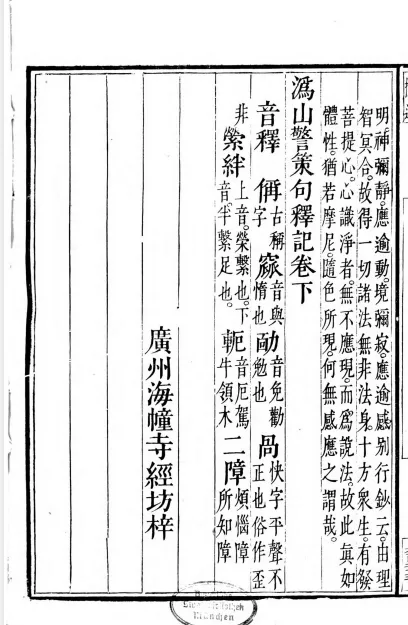 明神彌靜。應逾動。境彌寂。應逾感。別行鈔云。由理
智冥合。故得一切諸法無非法身。十方衆生。有發
菩提心。心識淨者。無不應現。而爲說法。故此眞如
體性。猶若摩尼。隨色所現。何無感應之謂哉。
潙山警策句釋記卷下
音釋 偁 古稱字 窳 音與惰也 勔 音免勸勉也 咼 快字平聲不正也俗作歪
非 縈絆 上音。榮繫也。下音半。繫足也。 軛 音厄駕牛領木 二障 煩惱障所知障
廣州海幢寺經坊梓
München